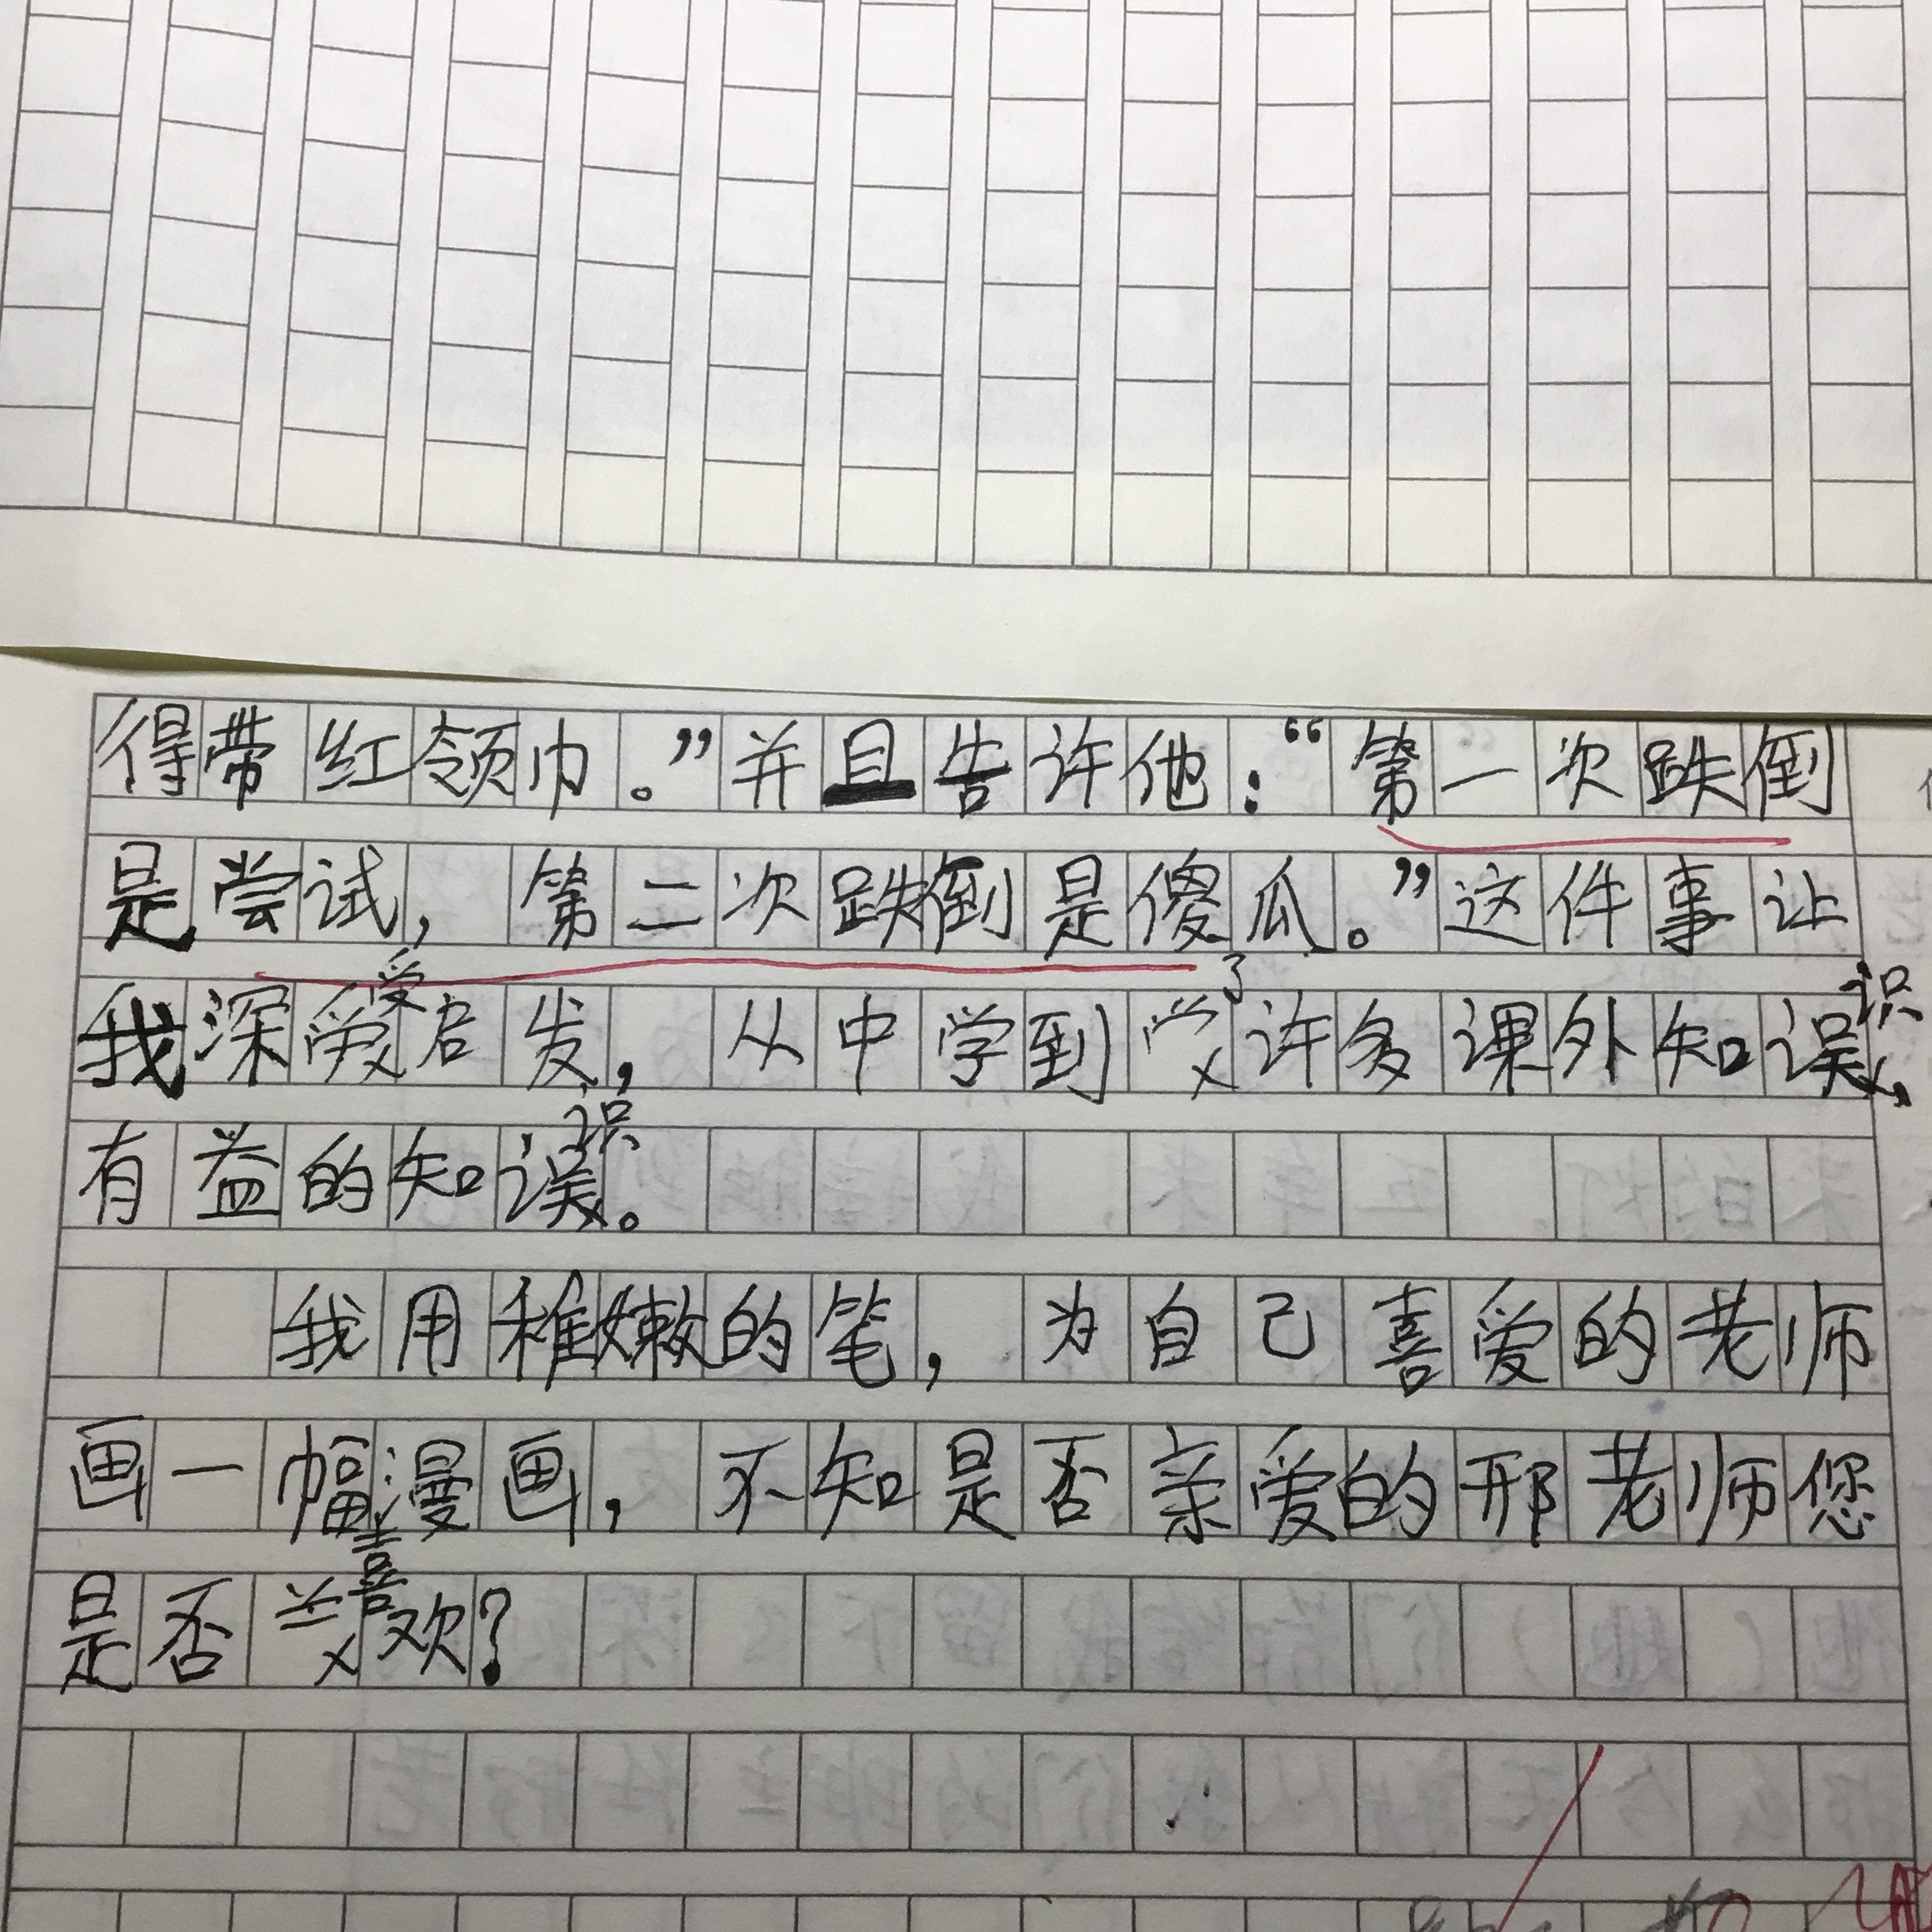 得带红领巾。”并且告许他：“第一次跌倒
是尝试，第二次跌倒是傻瓜。”这件事让
我深受启发，从中学到了许多课外知识、
有益的知识。
我用稚嫩的笔，为自己喜爱的老师
画一幅漫画，不知是否亲爱的邢老师您
是否喜欢？